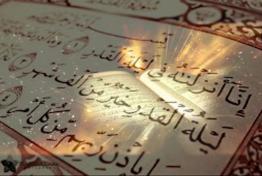 إِنَّا أَنزَلْنَٰهُ فِى لَيْلَةِ ٱلْقَدْرِ
لَيْلَةُ ٱلْقَدْرِ خَيْرٌ مِّنْ أَلْفِ شَهْرٍ
بِإِذْنِ رَبِّهِم مِّن كُلِّ